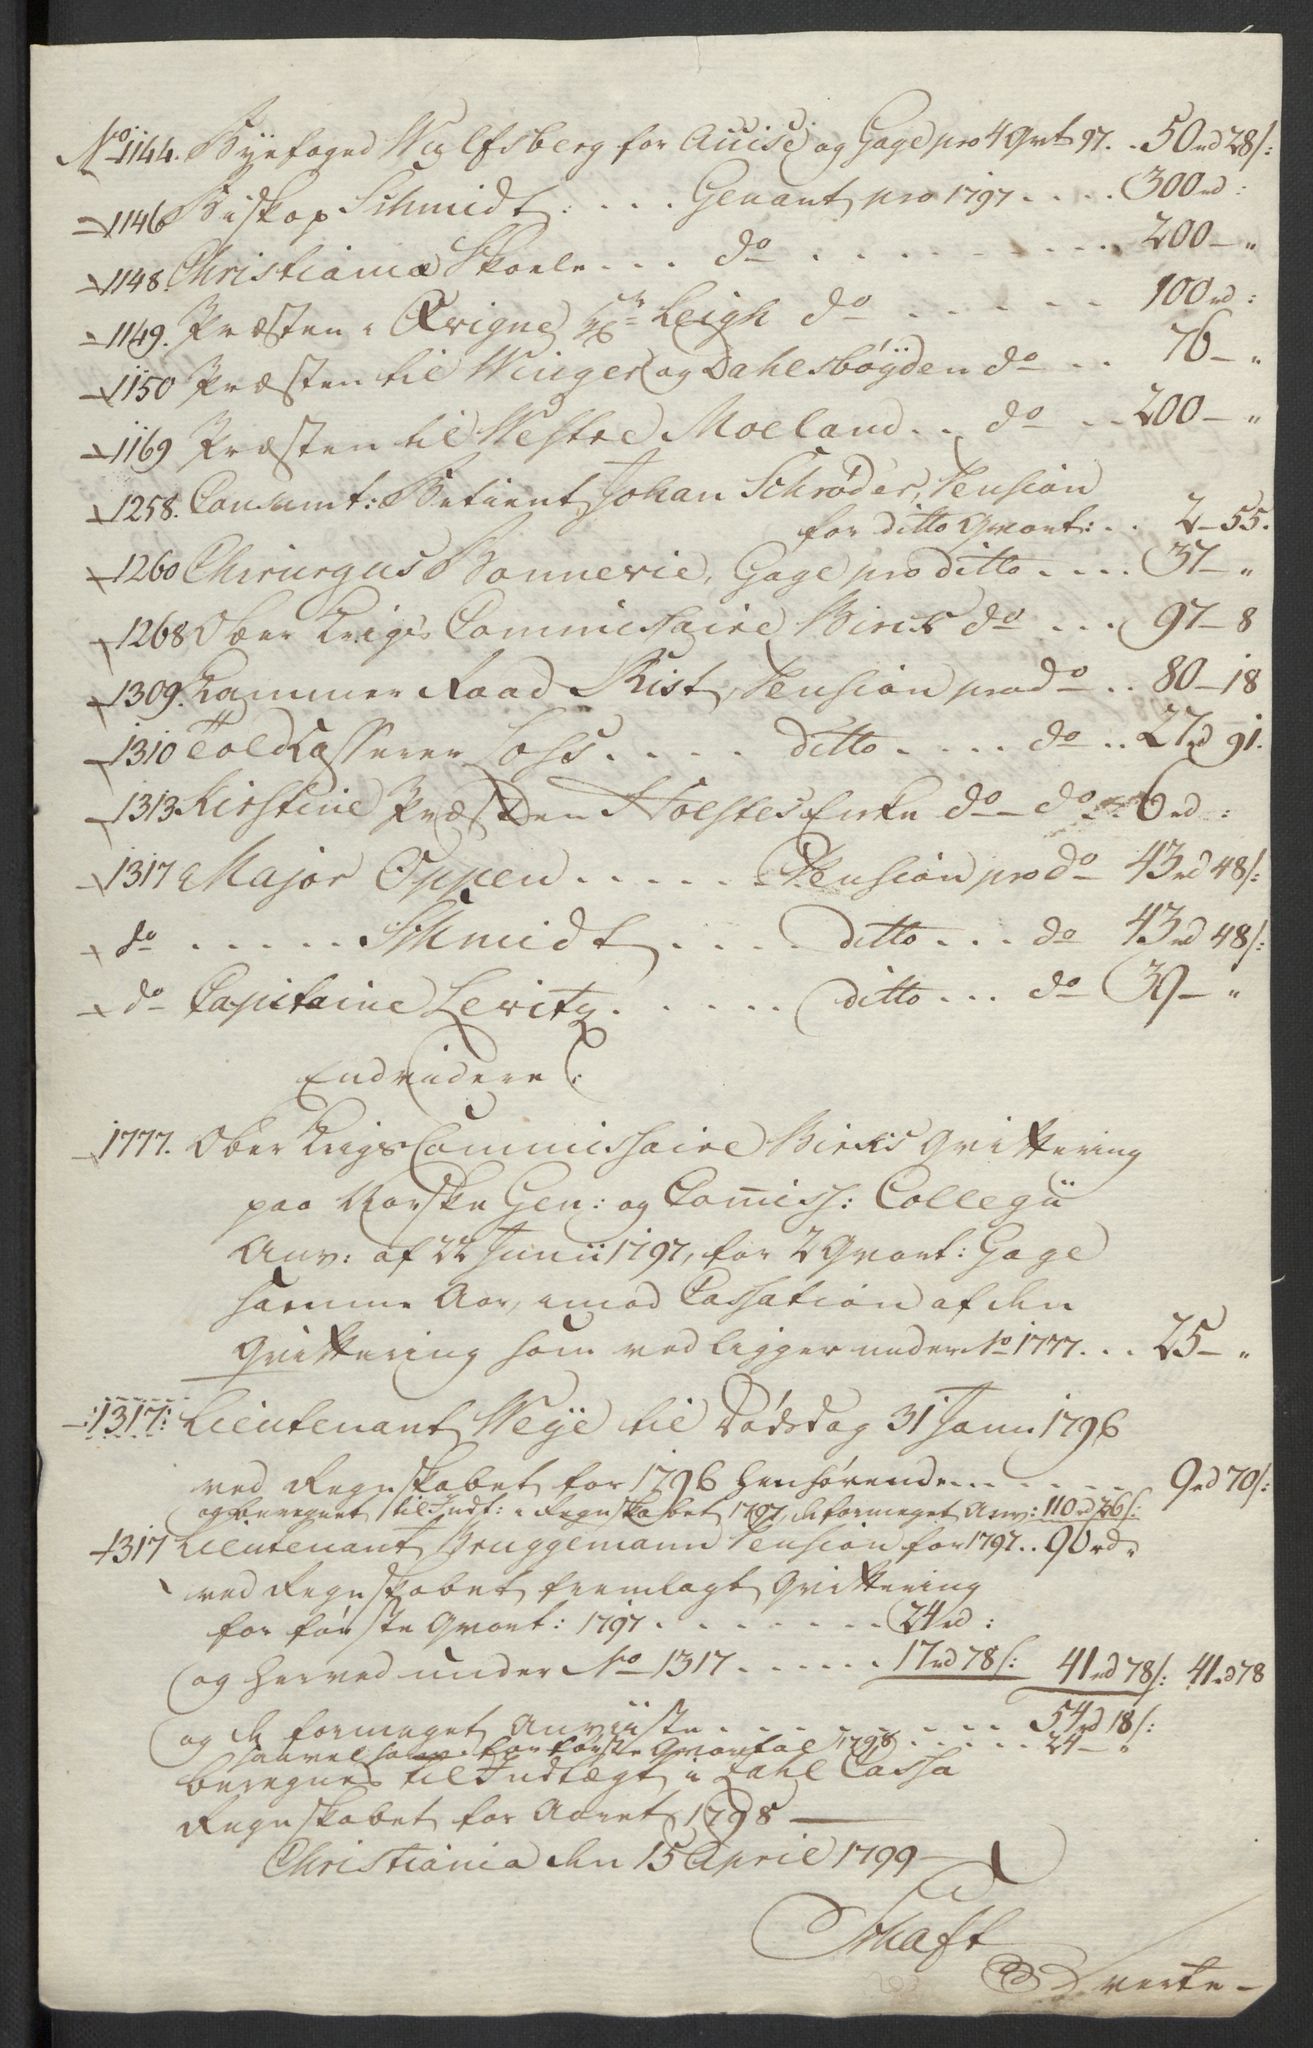 No 1144. Byefoged Wulfsberg for Accise og Gage pro 4 Qvrt 97. . 50 rd 28 s:
- 1146 Biskop Schmidt . . . . Genant pro 1797 . . . . 300 rd :
- 1148. Christiania Skoele . . . do . . . . . . . . . 200 - "
- 1149. Præsten i Qvigne Hr: Leigh do . . . . . . 100 rd :
- 1150 Præsten til Winger og Dahlsbøyden do . . 76 - "
- 1169 Præsten til Westre Moeland . . do . . 200 - "
- 1258. Consumt: Betient Johan Schrøder, Pension
for ditto Qvart: . . 2 - 55.
- 1260 Chirurgus Bonnevie, Gage pro ditto . . . . 37 - "
- 1268 Ober Krigs Commissaire Birch do . . . 97 - 8
- 1309. Kammer Raad Kist, Pension pro do . . 80 - 18
- 1310 Told Casserer Loss . . . . ditto . . . . do . . 27 rd 91.
- 1313 Kirstine Præsten Holstes Enke do - do 6 rd :
- 1317 Major Oppen . . . . . . Pension pro do 43 rd 48 s:
- do . . . . . . Schmidt . . . . ditto . . . do 43 rd 48 s:
- do Capitaine Levitz . . . . . ditto . . . do 39 - "
Endvidere :
- 1777. Ober Krigs Commissaire Birchs Qvittering
paa Norske Gen: og Com̅iss: Collegii
Anv: af 22 Junii 1797, for 2 Qvart: Gage
samme Aar, imod Cassation af den
Qvittering som ved ligger under No 1777 . . . 25 - "
- 1317: Lieutenant Weye til Dødsdag 31 Janu: 1796
ved Regnskabet for 1796 henhørende . . . . . . 9 rd 70 s:
og beregnet til Indt: i Regnskabet 1797, de formeget Anv: 110 rd 26 s:
1317 Lieutenant Bruggemann Pension for 1797 . . 96 rd "
ved Regnskabet fremlagt Qvittering
for første Qvart: 1797 . . . . . . . . 24 rd :
og herved under No 1317 . . . . . . 17 rd 78 s: 41 rd 78 s: 41 rd 78
og de formeget Anviiste . . . . . . . . . . 54 rd 18 s:
saavel som for første Qvartal 1798 . . . . . 24 - "
beregnes til Indtægt i Zahl Cassa
Regnskabet for Aaret 1798 -
Christiania den 15 April 1799 -
Schaft
verte -